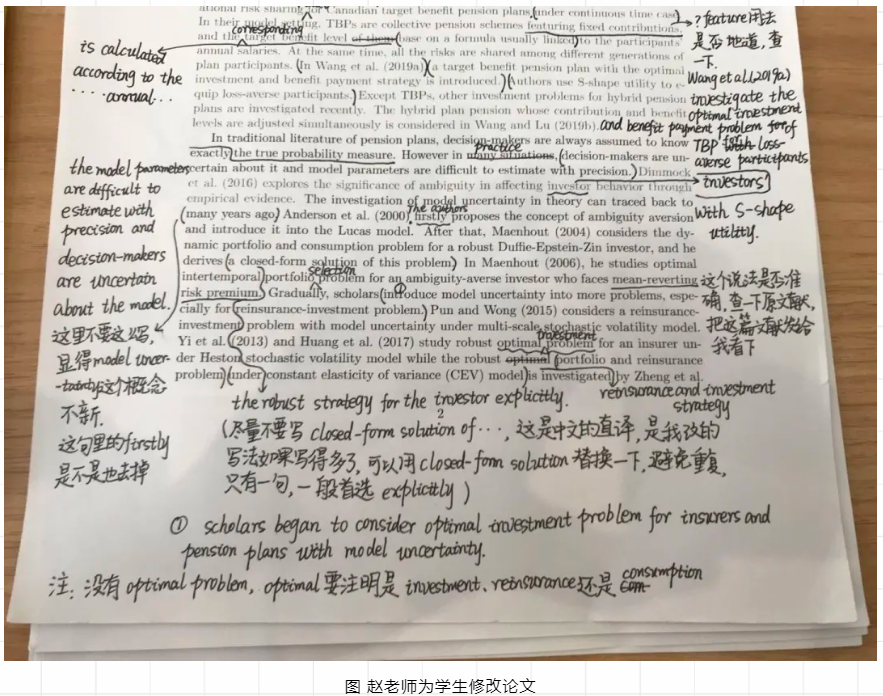 ational risk sharing for Canadian target benefit pension plans (under continuous time case)
In their model setting, TBPs are collective pension schemes featuring fixed contributions,
corresponding
and the target benefit level of them (base on a formula usually linked) to the participants'
annual salaries. At the same time, all the risks are shared among different generations of
plan participants. (In Wang et al. (2019a) (a target benefit pension plan with the optimal
investment and benefit payment strategy is introduced.) (Authors use S-shape utility to e-
quip loss-averse participants.) Except TBPs, other investment problems for hybrid pension
plans are investigated recently. The hybrid plan pension whose contribution and benefit
levels are adjusted simultaneously is considered in Wang and Lu (2019b).
In traditional literature of pension plans, decision-makers are always assumed to know
practice
exactly (the true probability measure. However in many situations, (decision-makers are un-
certain about it and model parameters are difficult to estimate with precision.) Dimmock
et al. (2016) explores the significance of ambiguity in affecting investor behavior through
empirical evidence. The investigation of model uncertainty in theory can traced back to
The authors
(many years ago) Anderson et al. (2000) firstly proposes the concept of ambiguity aversion
and introduce it into the Lucas model. After that, Maenhout (2004) considers the dy-
namic portfolio and consumption problem for a robust Duffie-Epstein-Zin investor, and he
derives (a closed-form solution of this problem) In Maenhout (2006), he studies optimal
selection
intertemporal portfolio problem for an ambiguity-averse investor who faces mean-reverting
①
risk premium. Gradually, scholars (introduce model uncertainty into more problems, espe-
cially for reinsurance-investment problem.) Pun and Wong (2015) considers a reinsurance-
investment problem with model uncertainty under multi-scale stochastic volatility model.
investment
Yi et al. (2013) and Huang et al. (2017) study robust optimal problem for an insurer un-
der Heston stochastic volatility model while the robust optimal (portfolio and reinsurance
problem) (under constant elasticity of variance (CEV) model) is investigated) by Zheng et al.
2
is calculated
according to the
.... annual...
the model parameters
are difficult to
estimate with
precision and
decision-makers
are uncertain
about the model.
这里不要这么写,
显得model uncer-
-tainty这个概念
不新.
这句里的firstly
是不是也去掉
?feature用法
是否地道,查
一下.
Wang et al.(2019a)
investigate the
optimal investment
and benefit payment problem for of
TBP with loss-
averse participants
investors'
with S-shape
utility.
这个说法是否准
确,查一下原文献,
把这篇文献发给
我看下
reinsurance and investment
strategy
the robust strategy for the investor explicitly.
(尽量不要写 closed-form solution of ···, 这是中文的直译, 是我改的
写法如果写得多了, 可以用 closed-form solution 替换一下, 避免重复,
只有一句, 一般首选 explicitly)
① scholars began to consider optimal investment problem for insurers and
pension plans with model uncertainty.
注: 没有 optimal problem, optimal 要注明是 investment、reinsurance 还是 consumption
图 赵老师为学生修改论文